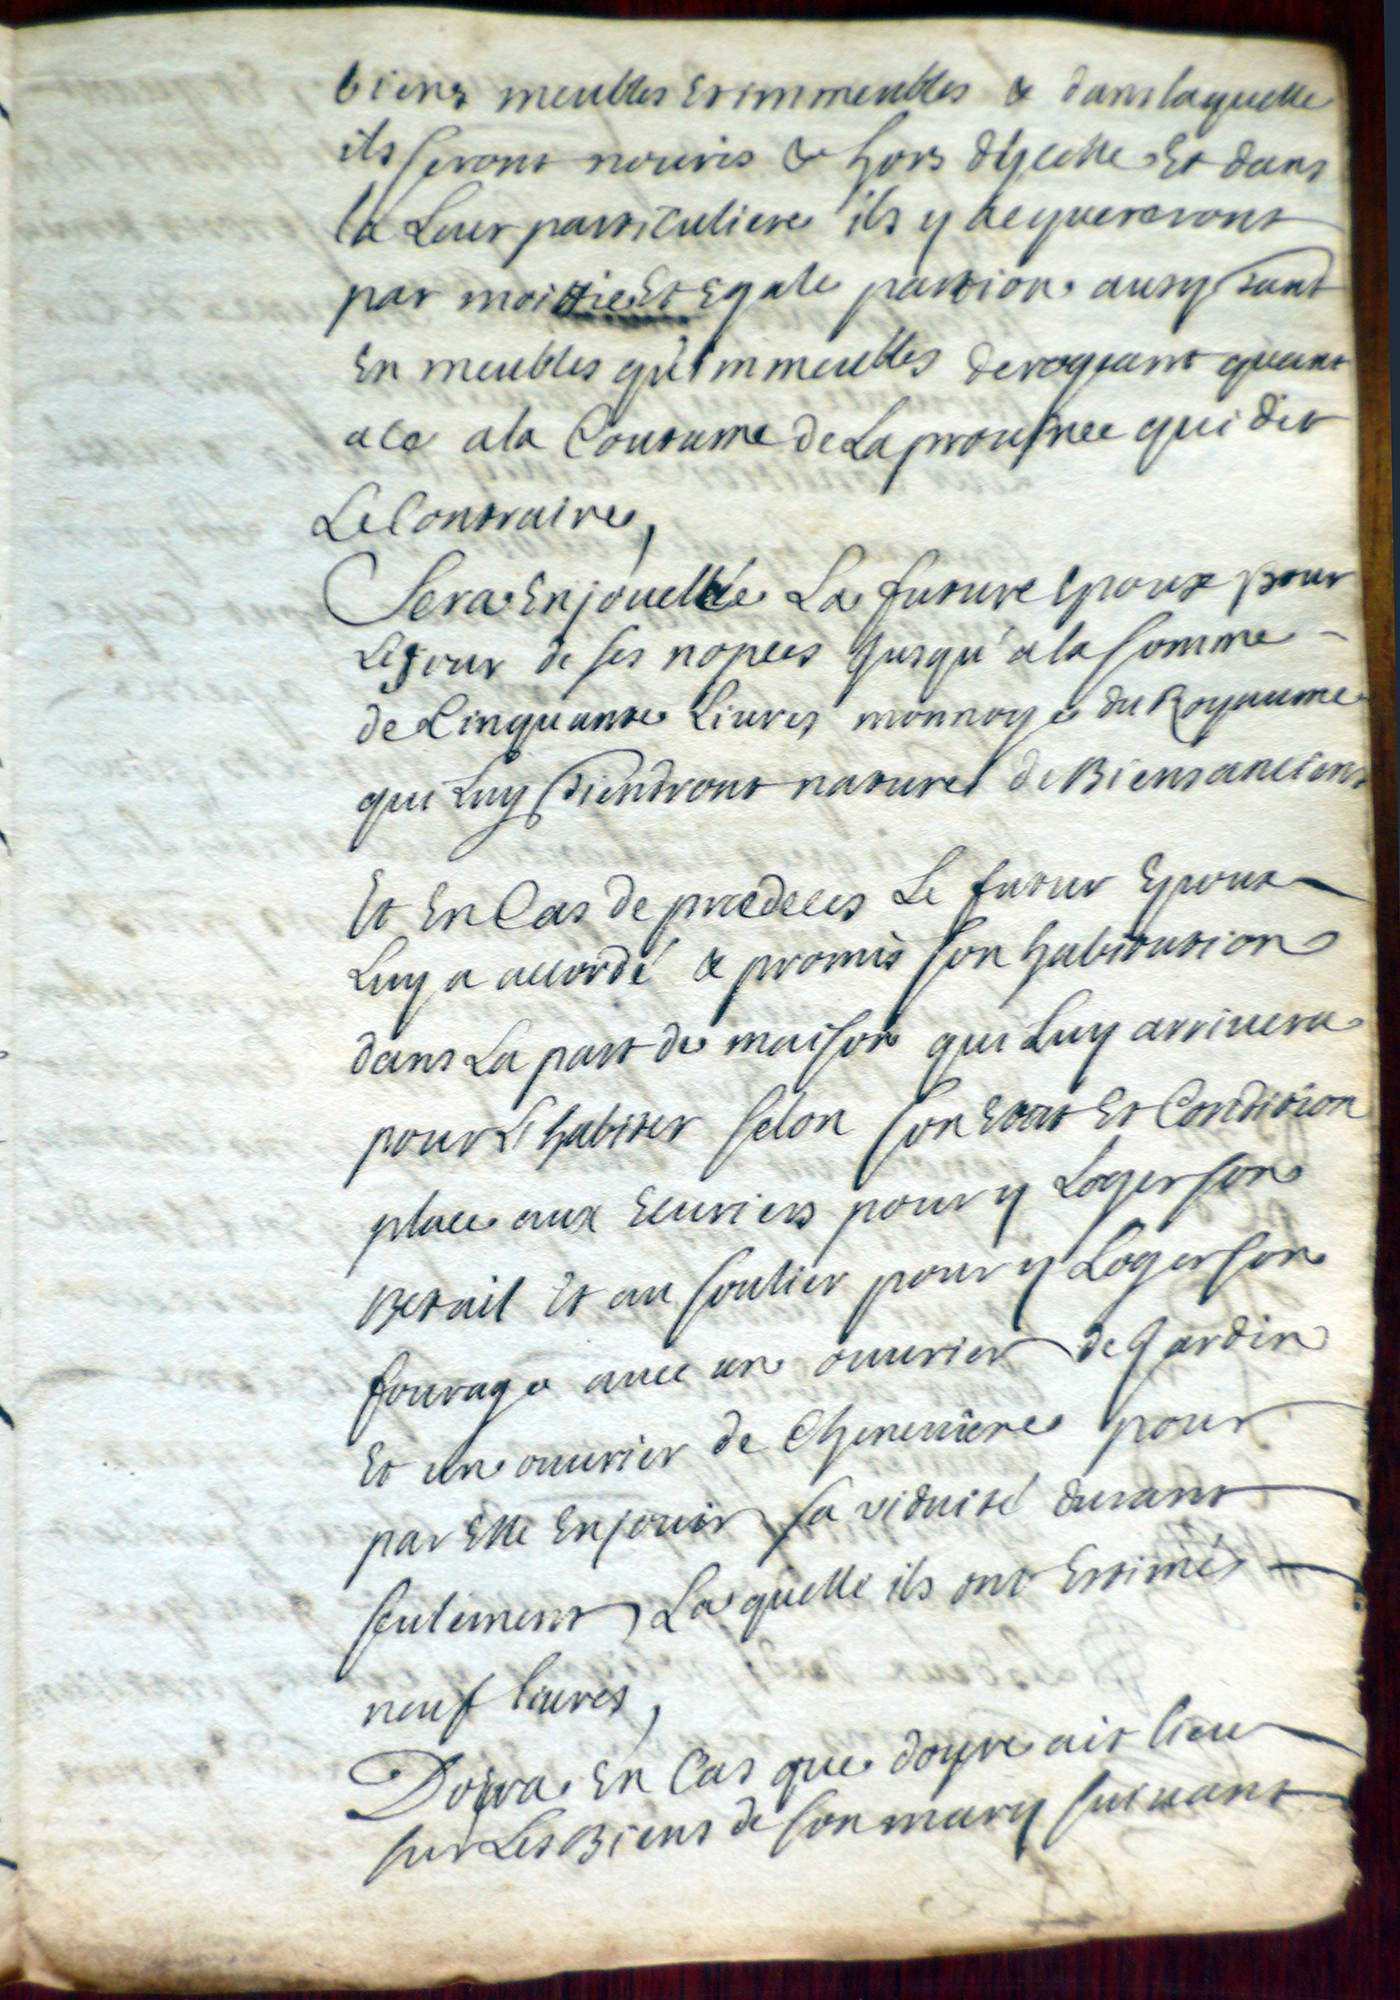 biens meubles et immeubles & dans laquelle
ils seront nouris & hors d'ycelle et dans
la Leur particuliere ils y acquereront
par moittie et Egale portion ausy tant
En meubles qu'immeubles derogeant quant
a ce a la Coutume de La prouince qui dit
Le Contraire,
Sera Enjouellée La future Epouse pour
Le Jour de ses nopces Jusqu'a la somme
de Cinquante Liures monnoye du Royaume
qui Luy tiendront nature de Biens anciens
Et En Cas de prædeces Le futur Epoux
Luy a accordé & promis son habitation
dans La part de maison qui Luy arriuera
pour L'habiter selon son Etat Et Condition
place aux Ecuriers pour y Loger son
Betail Et au soulier pour y Loger son
fourage auec un ouurier de Jardin
Et un ouurier de Cheneuiere pour
par Elle En jouir sa viduité durant
seulement, Laquelle ils ont Estimés
neuf liures,
Doüra En Cas que doyre ait lieu
sur Les Biens de son mary suiuant